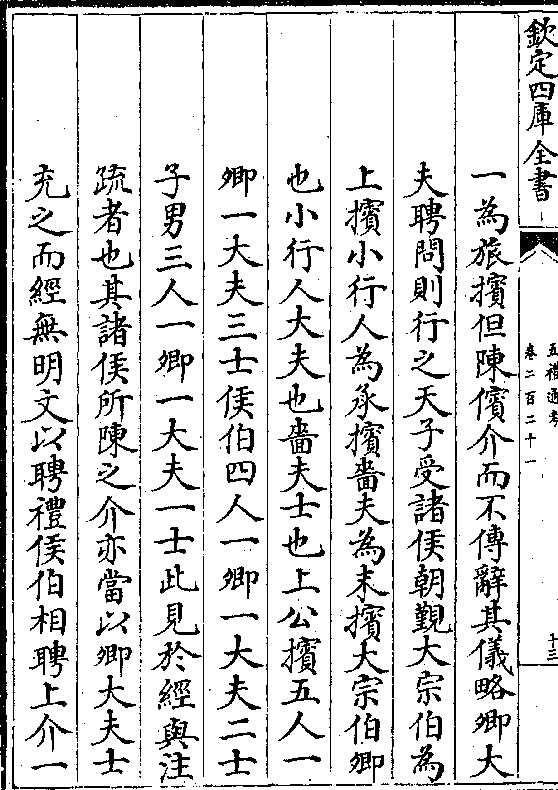 欽定四庫全書
五禮通考
卷二百二十一
十三
一為旅擯但陳儐介而不傳辭其儀略卿大
夫聘問則行之天子受諸侯朝覲大宗伯為
上擯小行人為承擯嗇夫為末擯大宗伯卿
也小行人大夫也嗇夫士也上公擯五人一
卿一大夫三士侯伯四人一卿一大夫二士
子男三人一卿一大夫一士此見於經與注
疏者也其諸侯所陳之介亦當以卿大夫士
充之而經無明文以聘禮侯伯相聘上介一